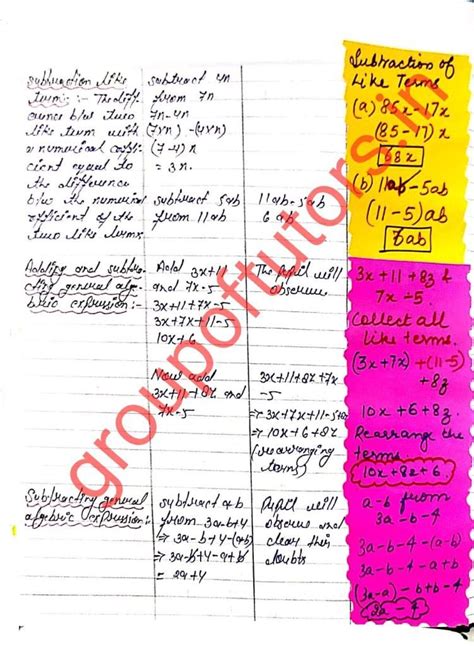 subtraction like
terms :- The diff
erence b/w two
like term with
a numerical coeffi
cient equal to
the difference
b/w the numerical
coefficient of the
two like terms.
subtract 4n
from 7n
7n-4n
(7×n) -(4×n)
(7-4)n
= 3n.
subtract 5ab
from 11ab
11ab-5ab
6ab
Adding and subtra-
cting general alge
braic expression:-
Add 3x+11
and 7x-5
3x+11+7x-5
3x+7x+11-5
10x+6
The pupil will
observe
Now add
3x+11+8z and
7x-5
3x+11+8z+7x
-5
⇒ 3x+7x+11-5+8z
⇒ 10x+6+8z
(rearranging
terms)
Subtracting general
algebric expression:-
subtract a-b
from 3a-b+4
⇒ 3a-b+4-(a-b)
⇒ 3a-b+4-a+b
= 2a+4
Pupil will
observe and
clear their
doubts
Subtraction of
Like Terms
(a) 85x-17x
(85-17)x
68x
(b) 11ab-5ab
(11-5)ab
6ab
3x+11+8z &
7x-5.
Collect all
like terms.
(3x+7x)+(11-5)
+8z
10x+6+8z.
Rearrange the
terms
10x+8z+6.
a-b from
3a-b-4
3a-b-4-(a-b)
3a-b-4-a+b
(3a-a)-b+b-4
2a-4
groupoftutors.in